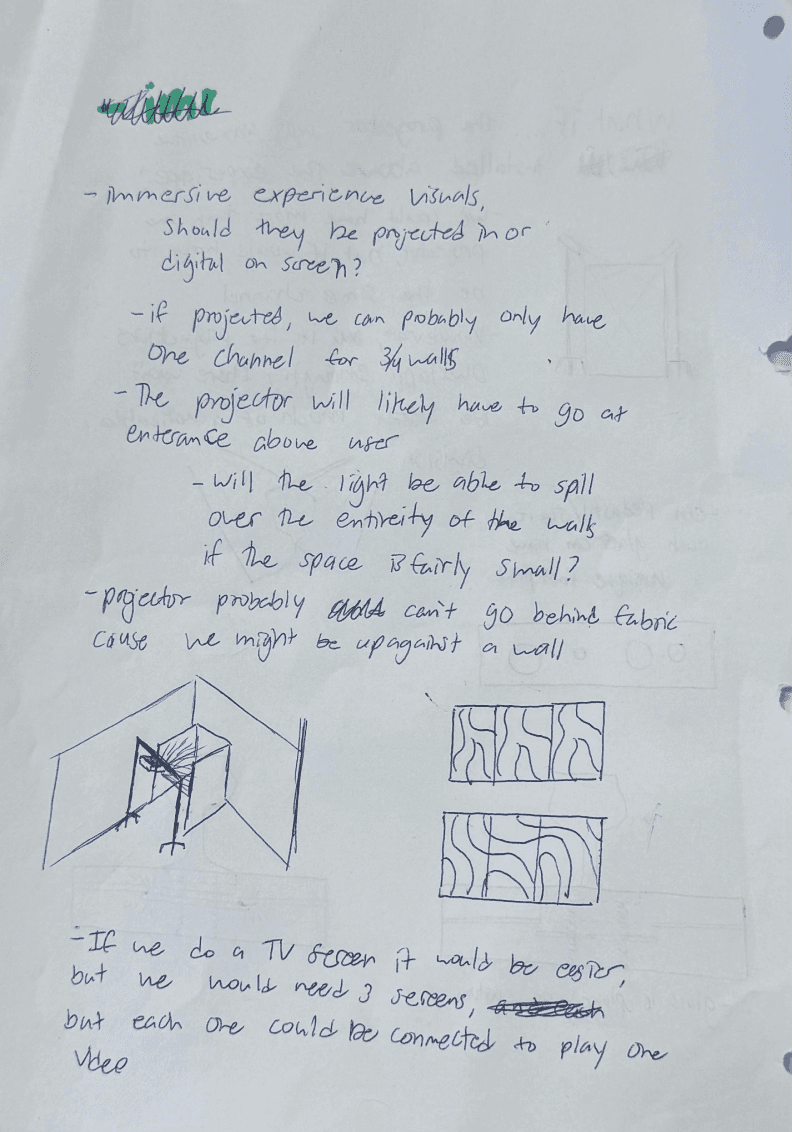 - immersive experience visuals,
should they be projected in or
digital on screen?
- if projected, we can probably only have
one channel for 3/4 walls
- The projector will likely have to go at
enterance above user
- will the light be able to spill
over the entireity of the walls
if the space is fairly small?
- projector probably can't go behind fabric
cause we might be up against a wall
- If we do a TV screen it would be easier,
but we would need 3 screens,
but each one could be connected to play one
video